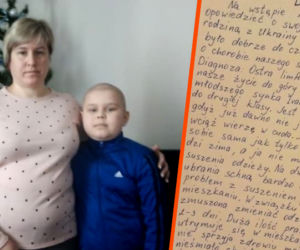 Na wstępie
opowiedzieć o swoj
rodziną z Ukrainy
było dobrze do cz
o chorobie naszego
Diagnoza: Ostra lim
nasze życie do góry
młodszego synka Iwa
do drugiej klasy. Jest
gdyż już dawno nie
wciąż wierzę w cuda.
sobie sama jak tylko
dzi zima, a ja nie m
suszenia odzieży. Na d
ubrania schną bardzo
problem z suszeniem
mieszkaniu. W związku
zmuszona zmieniać od
2-3 dni. Duża ilość pra
utrzymuje się w mieszk
nie sprzyja zdrowiu
nieśmiało